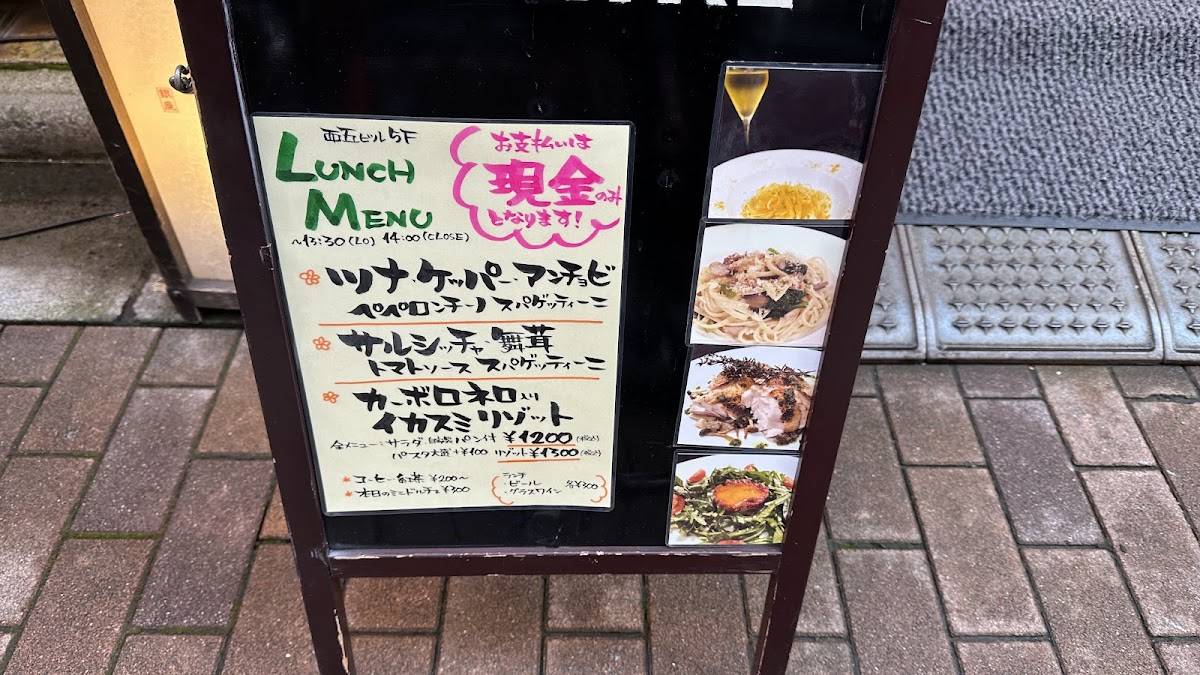 銀座
西五ビル5F
LUNCH
MENU
お支払いは
現金のみ
となります!
~13:30(LO) 14:00(CLOSE)
ツナ・ケッパー・アンチョビ
ペペロンチーノ スパゲッティーニ
サルシッチャ・舞茸
トマトソース スパゲッティーニ
カーボロネロ入り
イカスミリゾット
全メニュー:サラダ・自家製パン付 ¥1200(税込)
パスタ大盛+¥100 リゾット¥1300(税込)
コーヒー・紅茶 ¥200~
本日のミニドルチェ¥300
ランチ
・ビール
・グラスワイン
各¥300